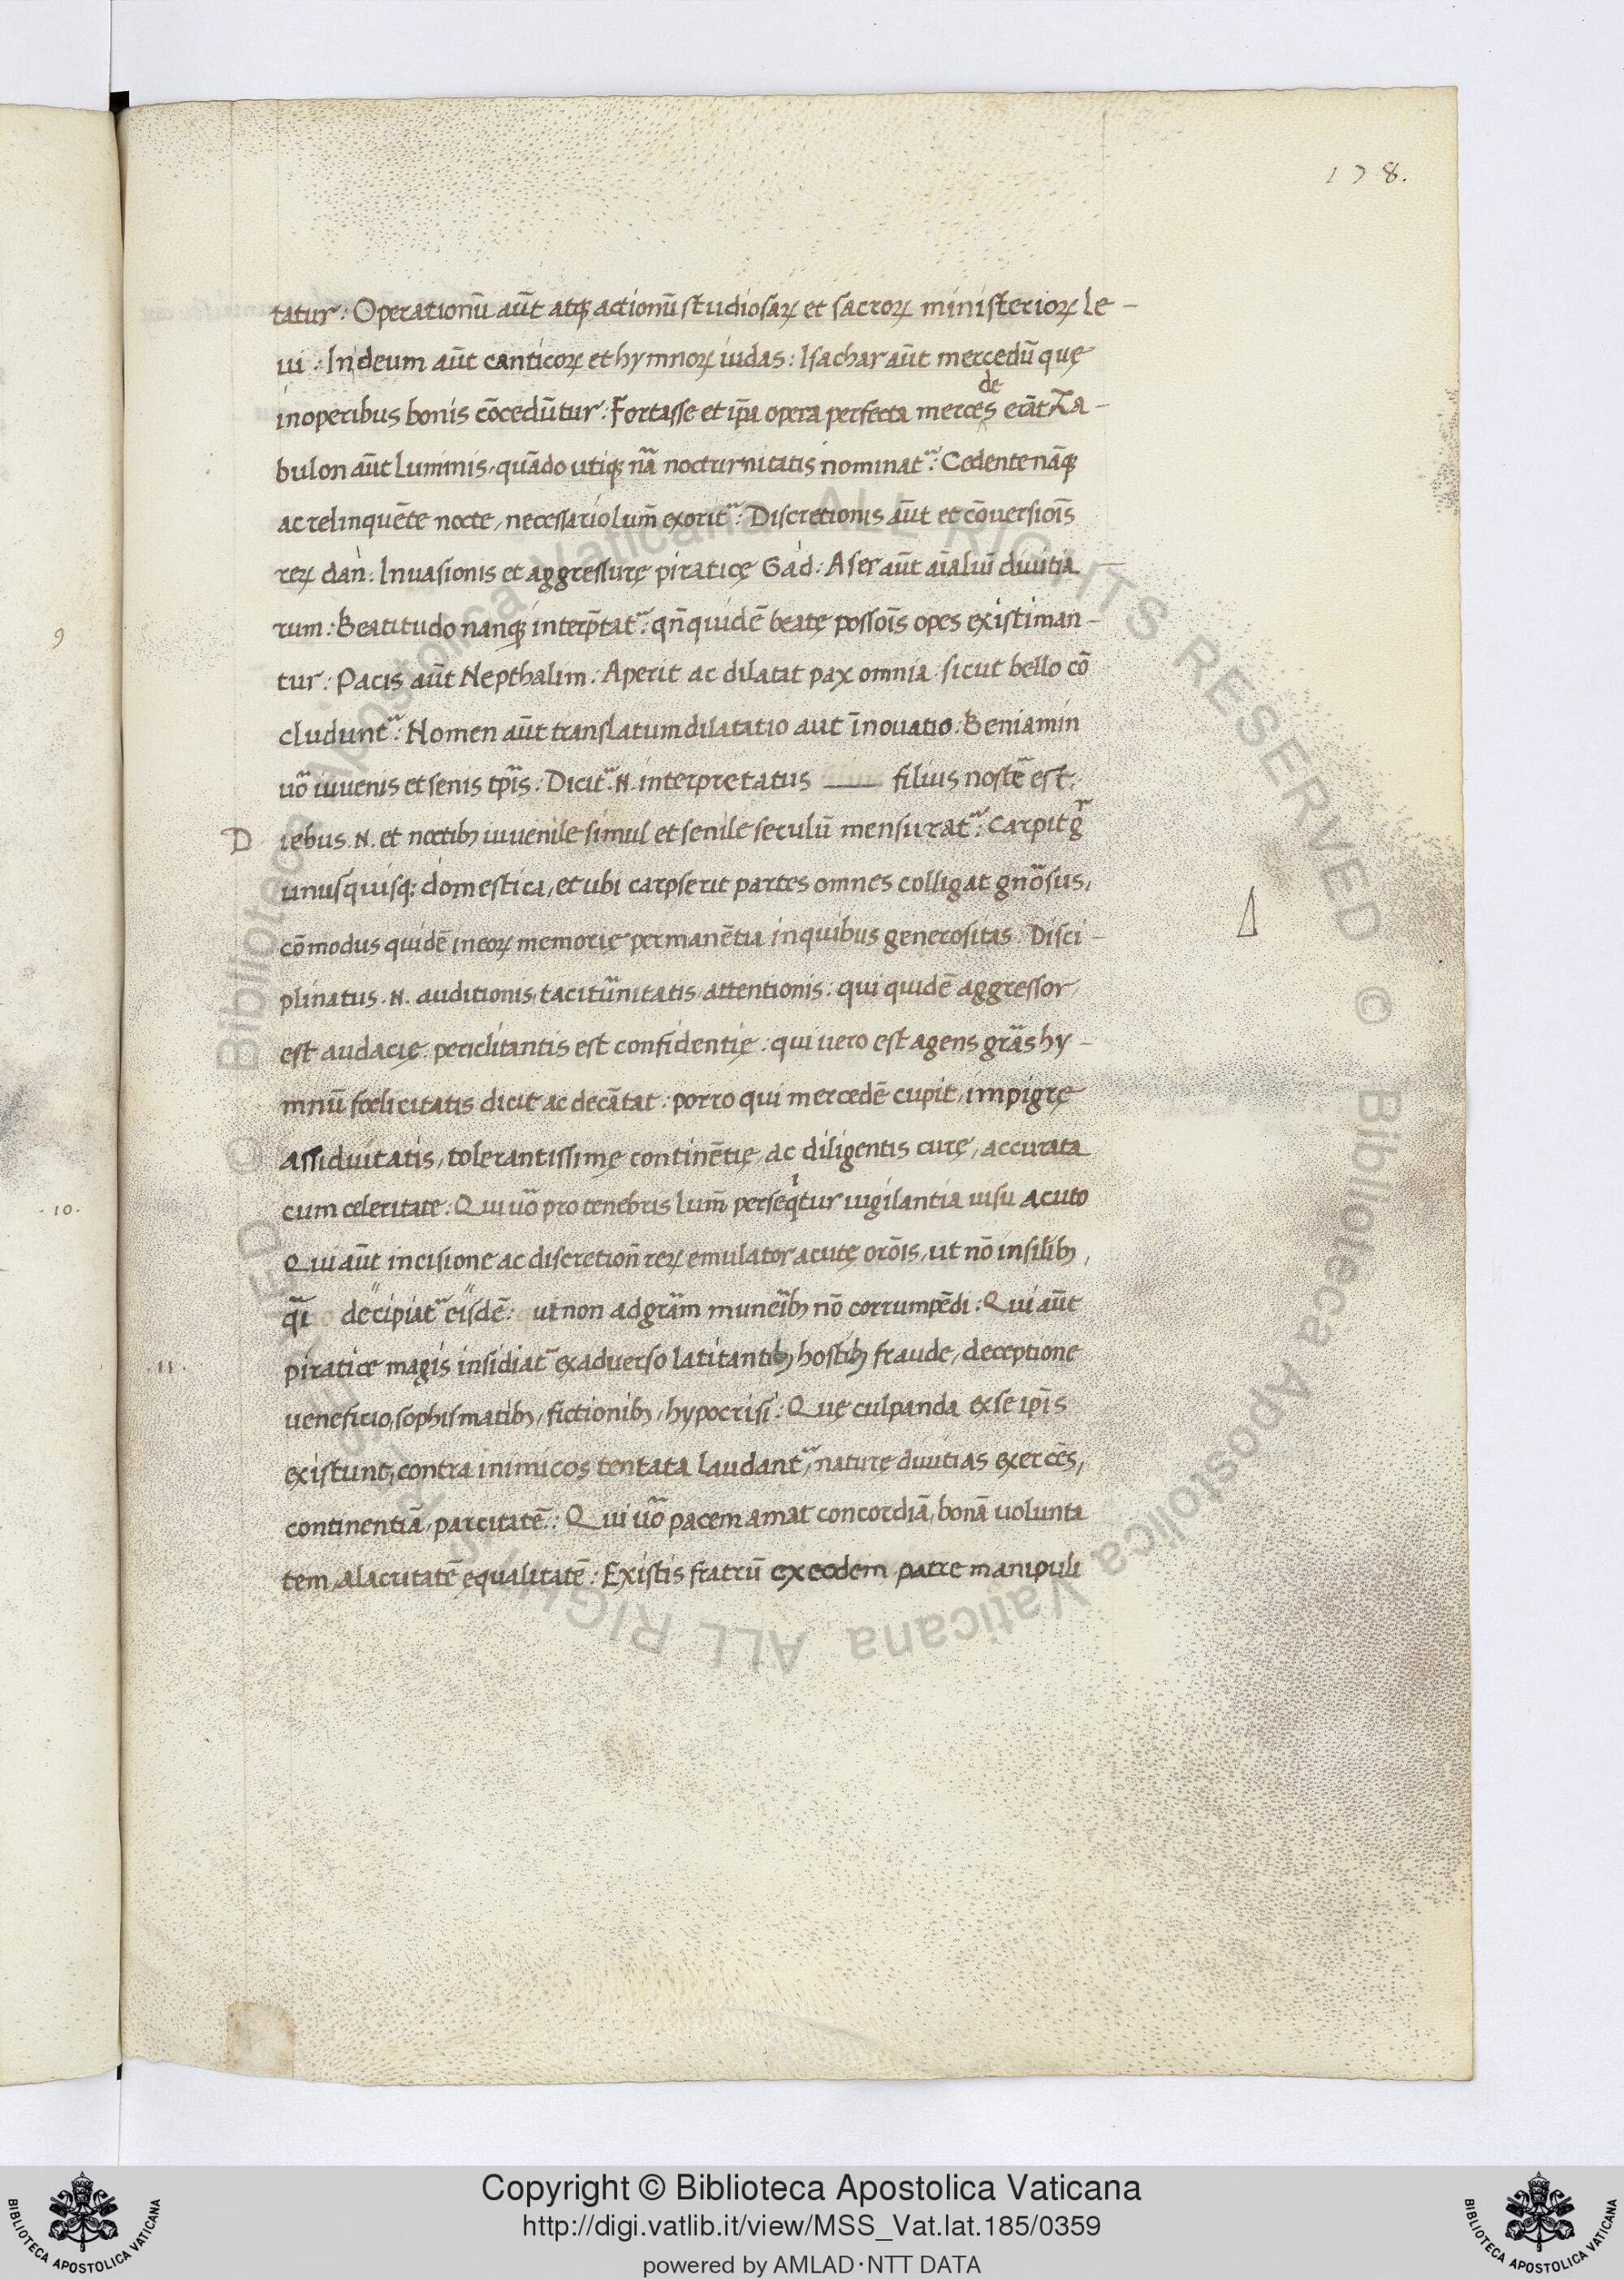 178.
tatur: Operationū aūt atqꝫ actionū studiosaꝝ et sacroꝝ ministerioꝝ Le-
ui: In deum aūt canticoꝝ et hymnoꝝ iudas: Isachar aūt mercedū quę
in operibus bonis cōcedūtur: Fortasse et ip̄a opera perfecta mercedes erāt Za-
bulon aūt Luminis, quādo utiqꝫ nā nocturnitatis nominat᷑: Cedente nāqꝫ
ac relinquēte nocte, necessario lum̄ exorit᷑: Discretionis aūt et cōuersiōis
reꝝ dan: Inuasionis et aggressurę piraticę Gad: Aser aūt aīalium diuitia
rum: Beatitudo nanqꝫ interp̄tat᷑: qn̄quidē beatę possōis opes existiman-
tur: Pacis aūt Nepthalim: Aperit ac dilatat pax omnia sicut bello cō
cludunt᷑: Nomen aūt translatum dilatatio aut īnouatio: Beniamin
uō iuuenis et senis tp̄is: Dicit᷑ .N. interpretatus filius noster est:
D iebus .N. et noctibꝫ iuuenile simul et senile seculū mensurat᷑: Carpit gr
unusquisqꝫ domestica, et ubi carpserit partes omnes colligat gnōsus,
cōmodus quidē in eoꝝ memorię permanētia in quibus generositas: Disci-
plinatus .N. auditionis, tacitūnitatis, attentionis: qui quidē aggressor
est audacię: periclitantis est confidentię: qui uero est agens grās hy-
mnū fœlicitatis dicit ac decātat: porro qui mercedē cupit, impigrę
assiduitatis, tolerantissimę continētię, ac diligentis curę, accurata
cum celeritate: Qui uō pro tenebris lum̄ perseqitur uigilantia uisu acuto
Qui aūt incisione ac discretion̄ reꝝ emulator acutę orōis, ut nō in silibꝫ,
decipiat᷑ eisdē: ut non ad grām munēibꝫ nō corrumpēdi: Qui aūt
piratice magis insidiat᷑ ex aduerso latitantibꝫ hostibꝫ fraude, deceptione
ueneficio, sophismatibꝫ, fictionibꝫ, hypocrisi: Quę culpanda ex se ip̄is
existunt, contra inimicos tentata laudant᷑, naturę diuitias exercēs,
continentiā, parcitatē: Qui uō pacem amat concordiā, bonā uolunta
tem, alacritatē equalitatē: Ex istis fratrū ex eodem patre manipuli
9
.10.
.11.
© Biblioteca Apostolica Vaticana ALL RIGHTS RESERVED © Biblioteca Apostolica Vaticana ALL RIGHTS RESERVED
Copyright © Biblioteca Apostolica Vaticana
http://digi.vatlib.it/view/MSS_Vat.lat.185/0359
powered by AMLAD·NTT DATA
BIBLIOTECA APOSTOLICA VATICANA
BIBLIOTECA APOSTOLICA VATICANA